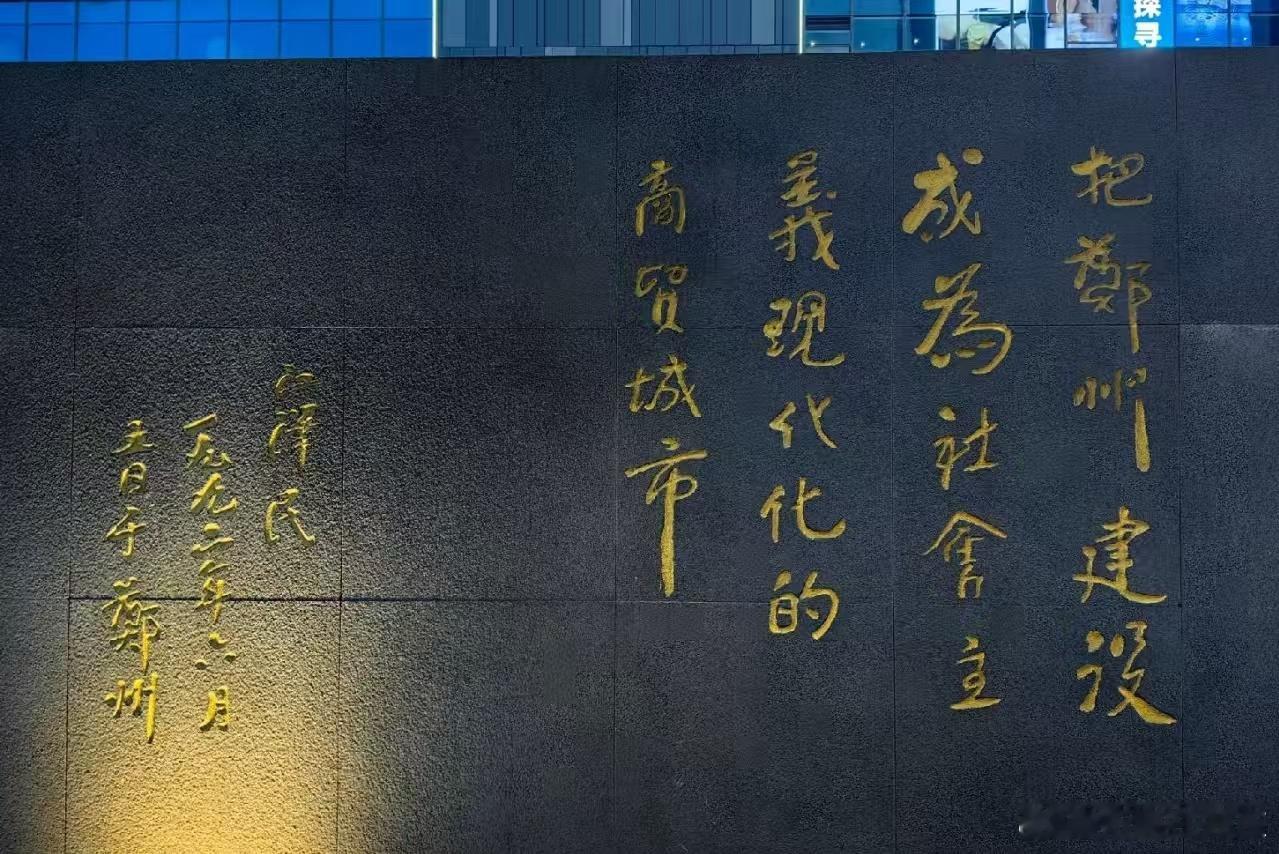 把鄭州建設
成為社會主
義現代化的
商貿城市
江澤民
一九九二年六月
五日于鄭州
探寻